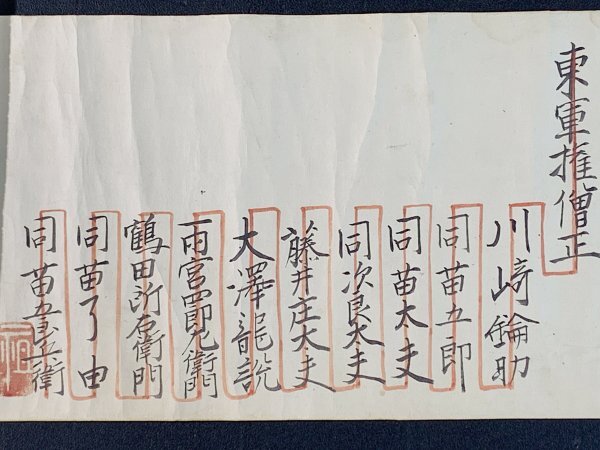 東軍権僧正
川崎錀助
同苗五郎
同苗太夫
同次良太夫
藤井庄大夫
大澤龍説
雨宮四郎左衛門
鶴田所右衛門
同苗了由
同苗 兵衛